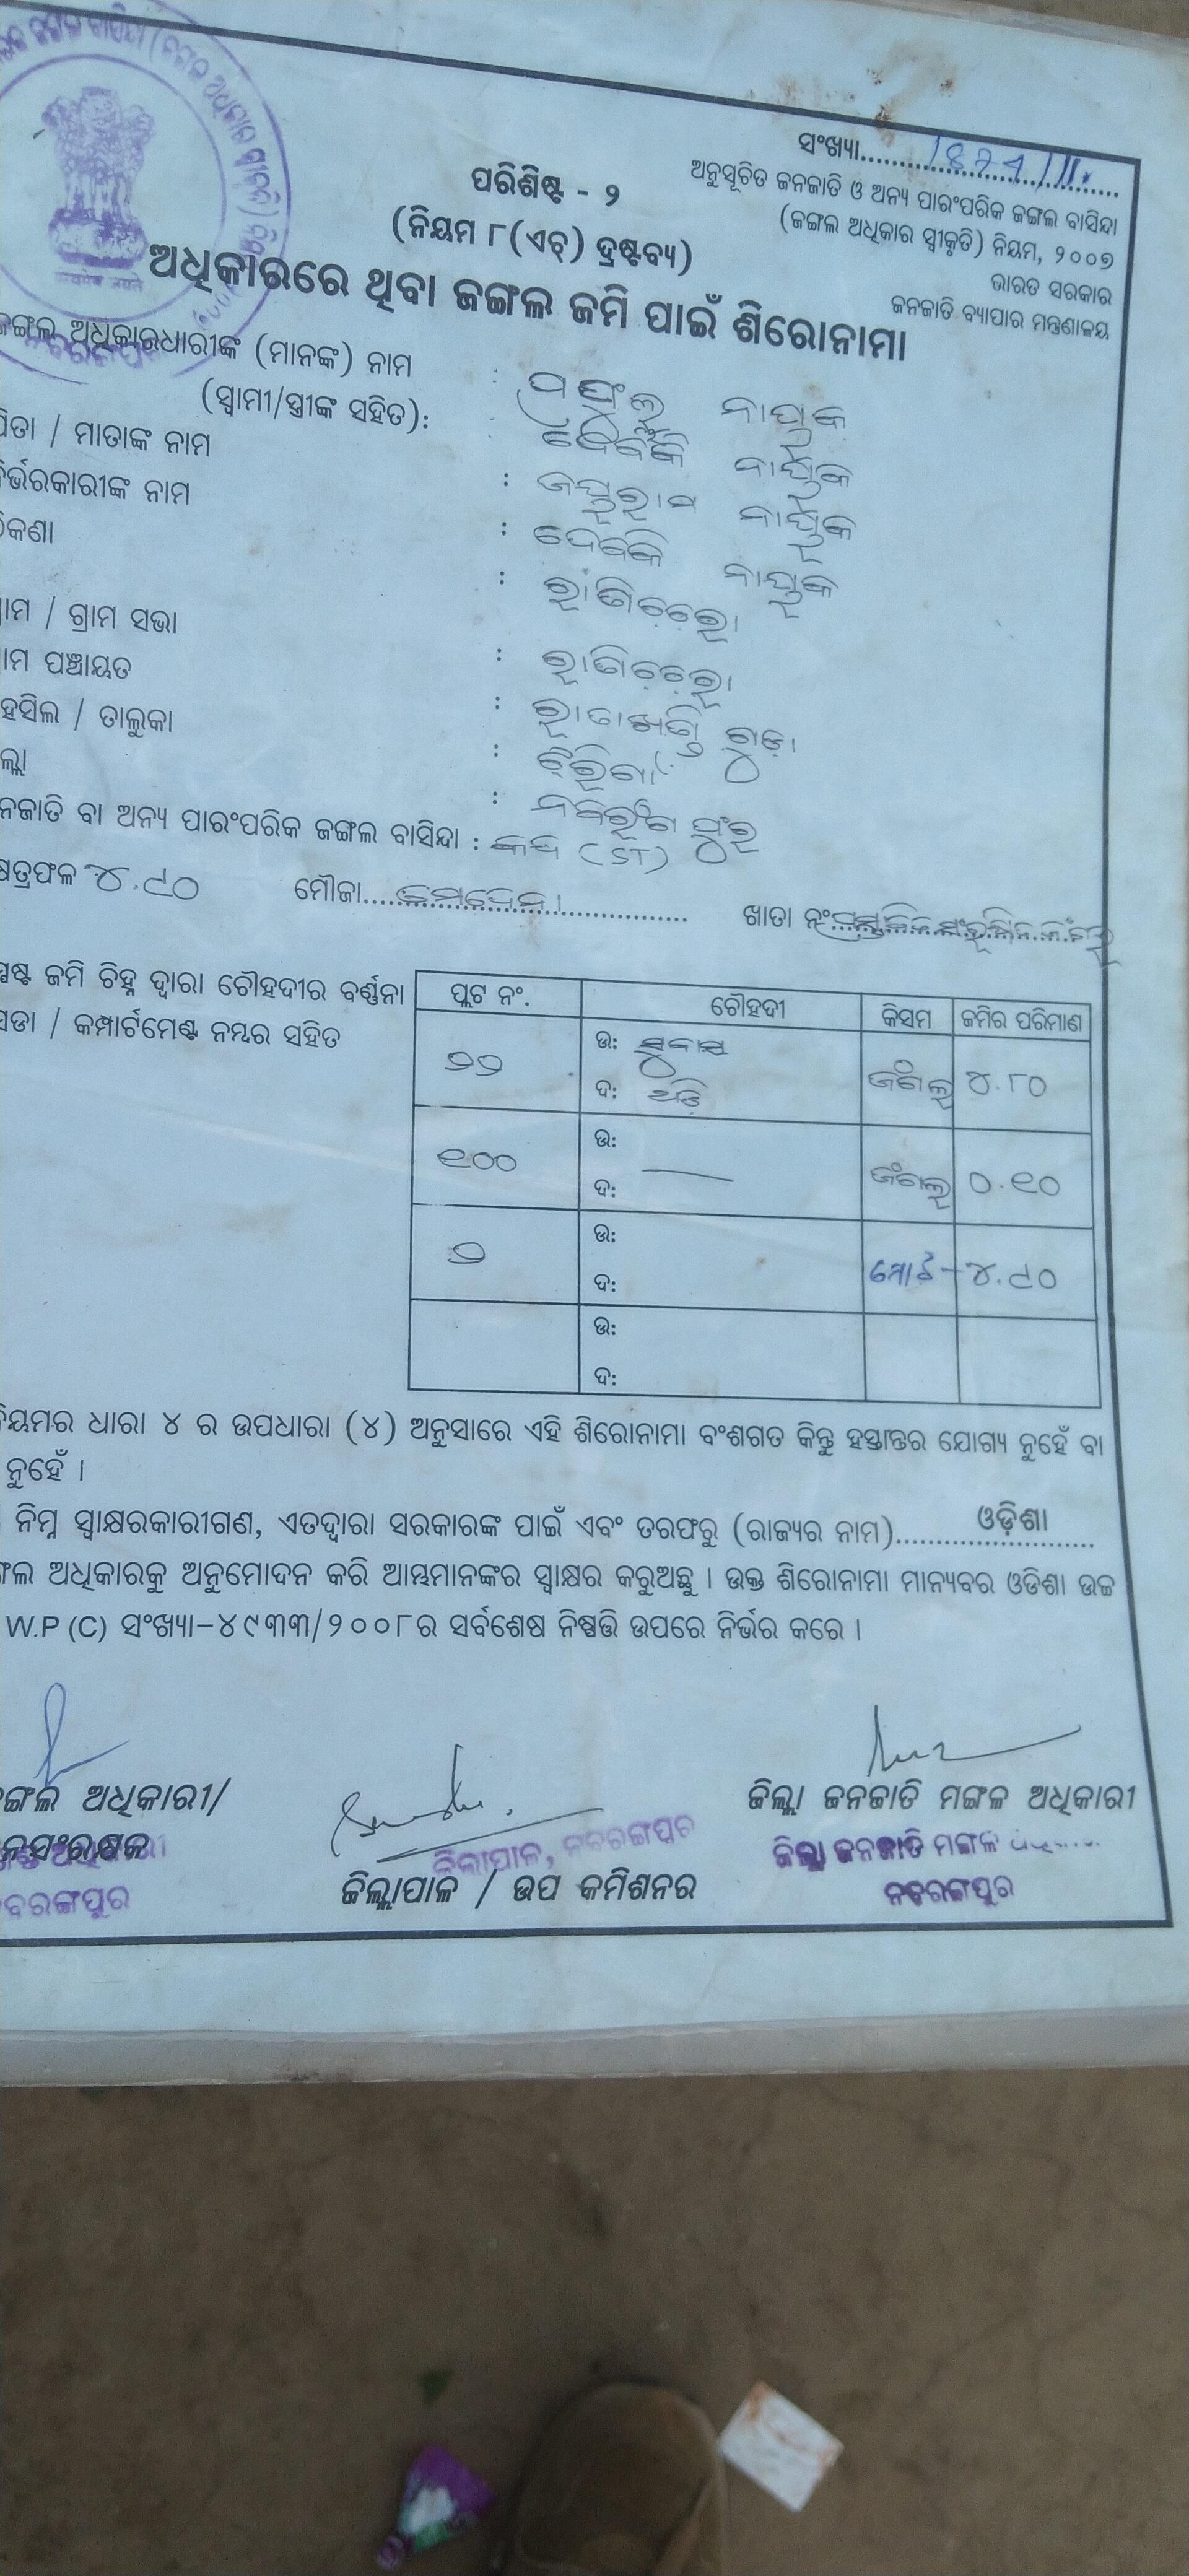 ସଂଖ୍ୟା
ଅନୁସୂଚିତ ଜନଜାତି ଓ ଅନ୍ୟ ପାରଂପରିକ ଜଙ୍ଗଲ ବାସିନ୍ଦା
(ଜଙ୍ଗଲ ଅଧିକାର ସ୍ୱୀକୃତି) ନିୟମ, ୨୦୦୭
ଭାରତ ସରକାର
ଜନଜାତି ବ୍ୟାପାର ମନ୍ତ୍ରଣାଳୟ
ପରିଶିଷ୍ଟ - ୨
(ନିୟମ ୮(ଏଚ୍) ଦ୍ରଷ୍ଟବ୍ୟ)
ଅଧିକାରରେ ଥିବା ଜଙ୍ଗଲ ଜମି ପାଇଁ ଶିରୋନାମା
ଜଙ୍ଗଲ ଅଧିକାରଧାରୀଙ୍କ (ମାନଙ୍କ) ନାମ : ପ୍ରଫୁଲ୍ଲ ନାୟକ
(ସ୍ୱାମୀ/ସ୍ତ୍ରୀଙ୍କ ସହିତ): ଦେବକି ନାୟକ
ପିତା / ମାତାଙ୍କ ନାମ : ଜୟରାମ ନାୟକ
ନିର୍ଭରକାରୀଙ୍କ ନାମ : ଦେବକି ନାୟକ
ଠିକଣା :
ଗ୍ରାମ / ଗ୍ରାମ ସଭା :
ଗ୍ରାମ ପଞ୍ଚାୟତ :
ତହସିଲ / ତାଲୁକା :
ଜିଲ୍ଲା : ନବରଂଗପୁର
ଜନଜାତି ବା ଅନ୍ୟ ପାରଂପରିକ ଜଙ୍ଗଲ ବାସିନ୍ଦା : (ST)
କ୍ଷେତ୍ରଫଳ ୪.୯୦ ମୌଜା ଖାତା ନଂ
ସ୍ପଷ୍ଟ ଜମି ଚିହ୍ନ ଦ୍ୱାରା ଚୌହଦୀର ବର୍ଣ୍ଣନା
ଖସଡା / କମ୍ପାର୍ଟମେଣ୍ଟ ନମ୍ବର ସହିତ
ପ୍ଲଟ ନଂ. ଚୌହଦୀ କିସମ ଜମିର ପରିମାଣ
୨୨ ଉ: ଦ: ଜଂଗଲ ୪.୮୦
୧୦୦ ଉ: ଦ: ଜଂଗଲ ୦.୧୦
୨ ଉ: ଦ: ମୋଟ - ୪.୯୦
ଉ:
ଦ:
ନିୟମର ଧାରା ୪ ର ଉପଧାରା (୪) ଅନୁସାରେ ଏହି ଶିରୋନାମା ବଂଶଗତ କିନ୍ତୁ ହସ୍ତାନ୍ତର ଯୋଗ୍ୟ ନୁହେଁ ବା
ନୁହେଁ ।
ନିମ୍ନ ସ୍ୱାକ୍ଷରକାରୀଗଣ, ଏତଦ୍ୱାରା ସରକାରଙ୍କ ପାଇଁ ଏବଂ ତରଫରୁ (ରାଜ୍ୟର ନାମ) ଓଡ଼ିଶା
ଜଙ୍ଗଲ ଅଧିକାରକୁ ଅନୁମୋଦନ କରି ଆମ୍ଭମାନଙ୍କର ସ୍ୱାକ୍ଷର କରୁଅଛୁ । ଉକ୍ତ ଶିରୋନାମା ମାନ୍ୟବର ଓଡିଶା ଉଚ୍ଚ
W.P (C) ସଂଖ୍ୟା-୪୯୩୩/୨୦୦୮ର ସର୍ବଶେଷ ନିଷ୍ପତ୍ତି ଉପରେ ନିର୍ଭର କରେ ।
ଜଙ୍ଗଲ ଅଧିକାରୀ/
ବନସଂରକ୍ଷକ
ନବରଙ୍ଗପୁର
ଜିଲ୍ଲାପାଳ, ନବରଙ୍ଗପୁର
ଜିଲ୍ଲାପାଳ / ଉପ କମିଶନର
ଜିଲ୍ଲା ଜନଜାତି ମଙ୍ଗଳ ଅଧିକାରୀ
ଜିଲ୍ଲା ଜନଜାତି ମଙ୍ଗଳ
ନବରଙ୍ଗପୁର